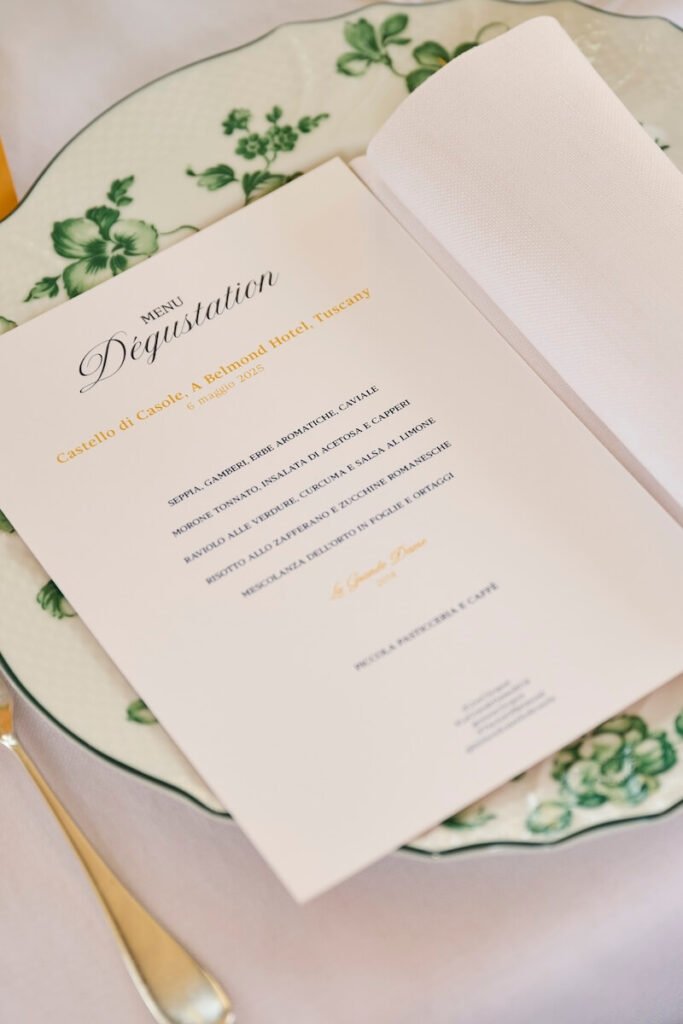 MENU
Dégustation
Castello di Casole, A Belmond Hotel, Tuscany
6 maggio 2025
SEPPIA, GAMBERI, ERBE AROMATICHE, CAVIALE
MORONE TONNATO, INSALATA DI ACETOSA E CAPPERI
RAVIOLO ALLE VERDURE, CURCUMA E SALSA AL LIMONE
RISOTTO ALLO ZAFFERANO E ZUCCHINE ROMANESCHE
MESCOLANZA DELL'ORTO IN FOGLIE E ORTAGGI
La Grande Dame
PICCOLA PASTICCERIA E CAFFÈ